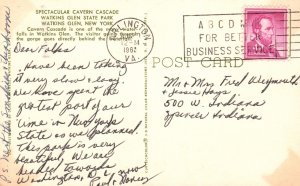 SPECTACULAR CAVERN CASCADE
WATKINS GLEN STATE PARK
WATKINS GLEN, NEW YORK
Cavern Cascade is one of the
falls in Watkins Glen. The
the gorge goes directly behind the
ARLINGTON
12-M
1962
VA.
A B C D M
FOR BET
BUSINESS SE
POST CARD
Dear Folks
Have been taking
it very slow & easy.
We have spent the
greatest part of our
time in New York
State as we planned.
This park is very
beautiful. We are
headed towards
Washington, D.C. now
Mr & Mrs Fred Weymouth
& Jessie Hays
500 W. Indiana
Spencer Indiana